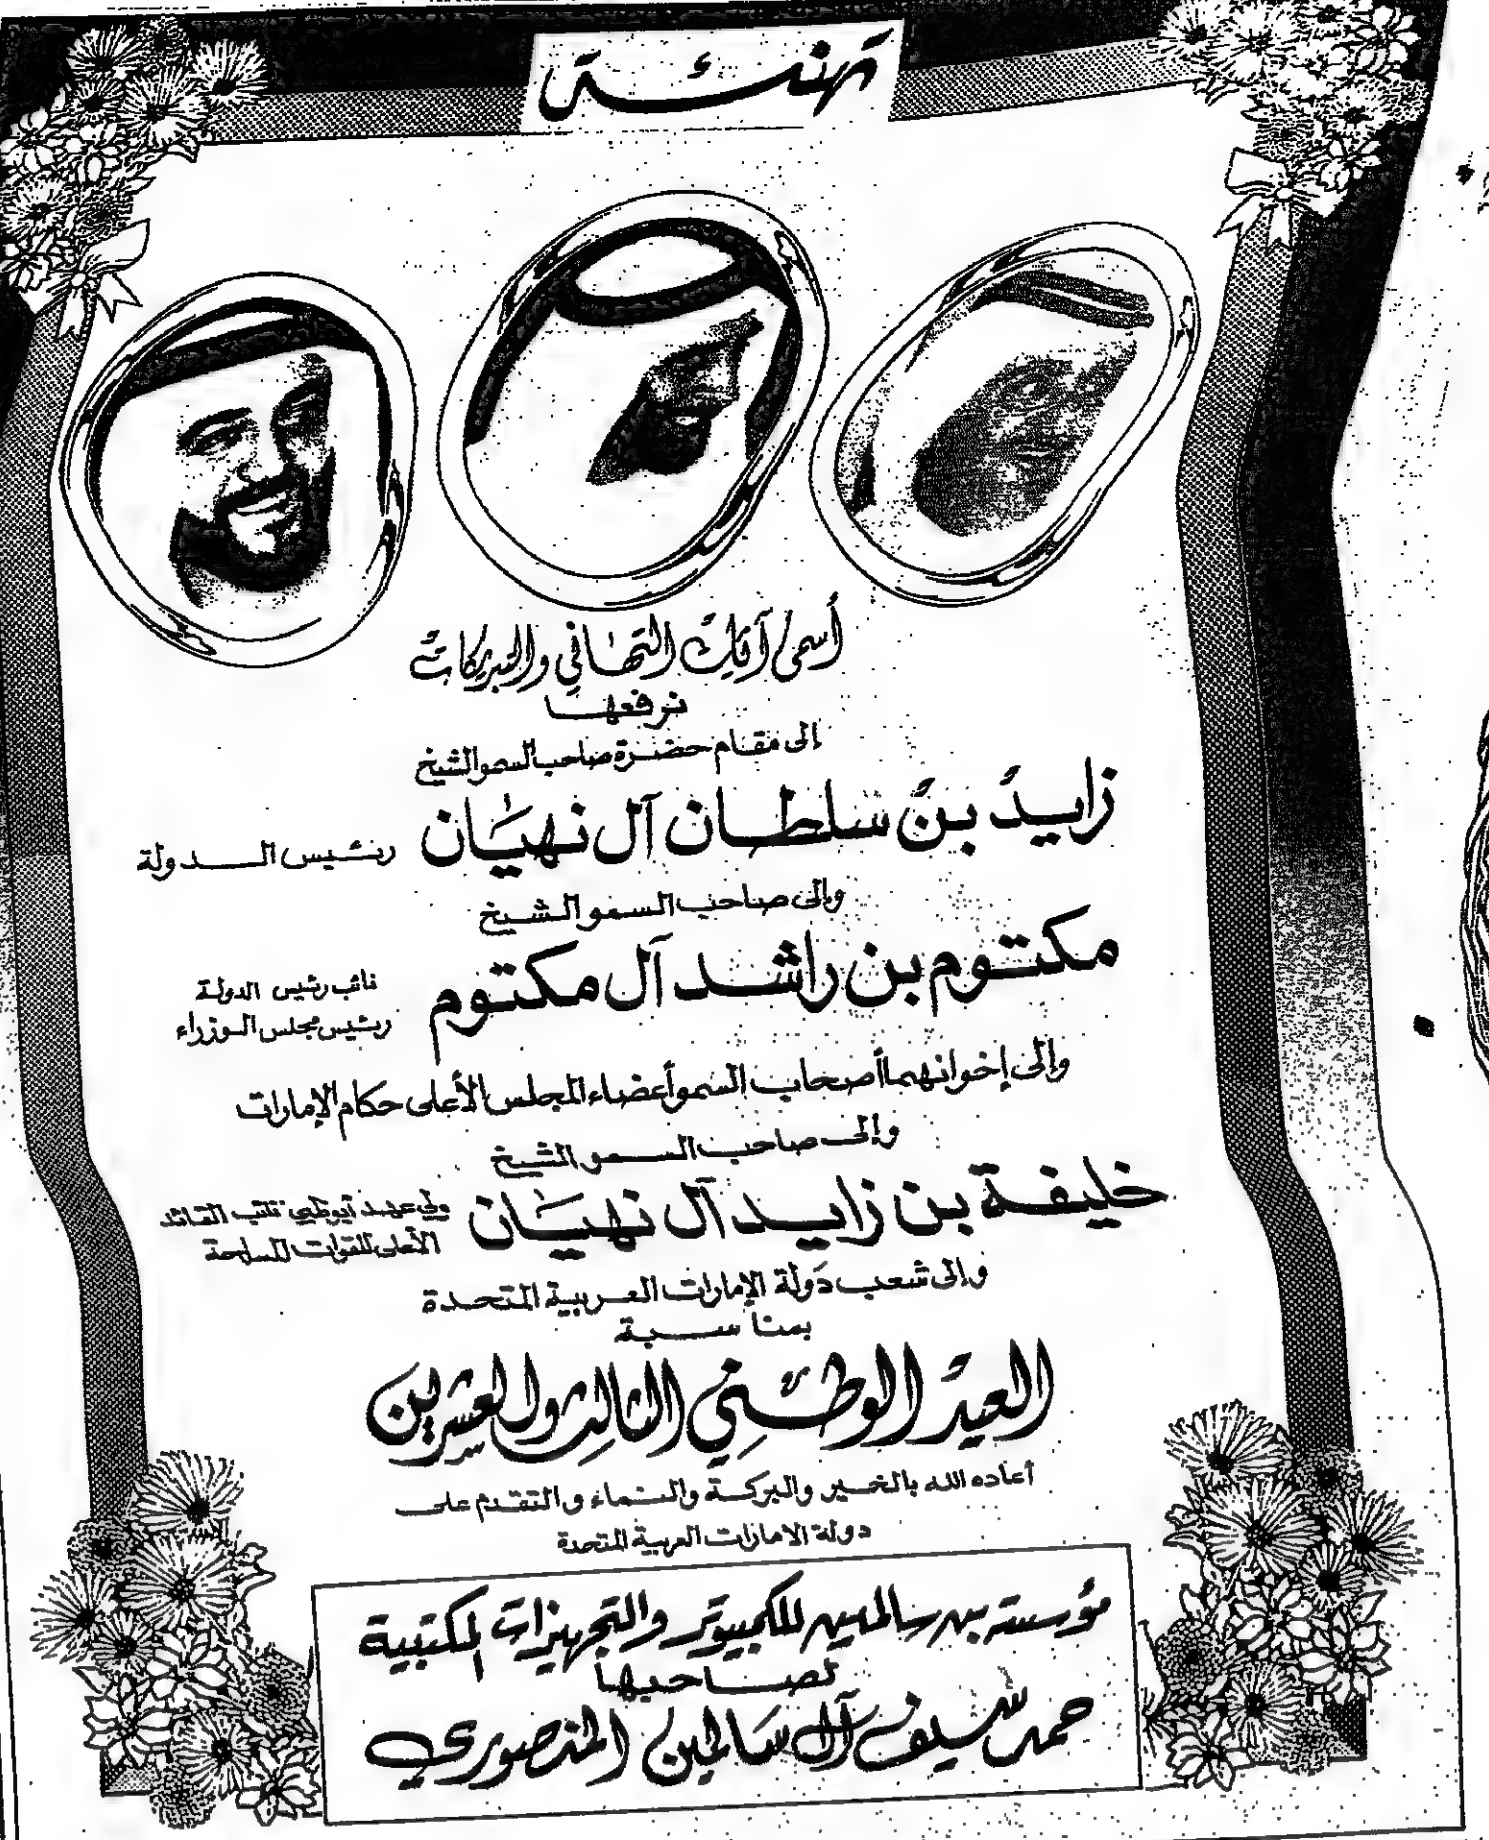 تهنئة
أسمى آيات التهاني والتبريكات
نرفعها
إلى مقام حضرة صاحب السمو الشيخ
زايد بن سلطان آل نهيان رئيس الدولة
وإلى صاحب السمو الشيخ
مكتوم بن راشد آل مكتوم نائب رئيس الدولة
رئيس مجلس الوزراء
وإلى إخوانهما أصحاب السمو أعضاء المجلس الأعلى حكام الإمارات
وإلى صاحب السمو الشيخ
خليفة بن زايد آل نهيان ولي عهد أبوظبي نائب القائد
الأعلى للقوات المسلحة
وإلى شعب دولة الإمارات العربية المتحدة
بمناسبة
العيد الوطني الثالث والعشرين
أعاده الله بالخير والبركة والنماء والتقدم على
دولة الامارات العربية المتحدة
مؤسسة بن سالمين للكمبيوتر والتجهيزات المكتبية
لصاحبها
حمد سيف آل سالمين المنصوري